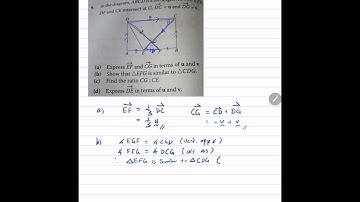 In the diagram, ABCD is a
DF and CE intersect at G, DC = u and DG = v.
(a) Express EF and CG in terms of u and v.
(b) Show that △EFG is similar to △CDG.
(c) Find the ratio CG : CE.
(d) Express DE in terms of u and v.
a) EF = 1/3 DC CG = CD + DG
= 1/3 u = -u + v
b) ∠EGF = ∠CGD (vert. opp ∠)
∠FEG = ∠DCG (alt ∠s)
∴ △EFG is similar to △CDG (